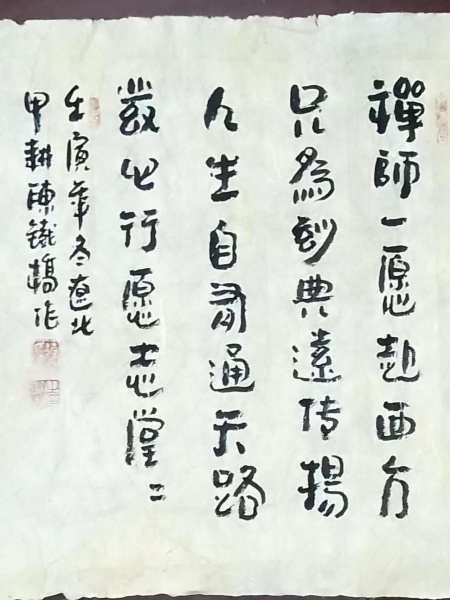 禪師一愿赴西方
只為妙典遠传揚
人生自有通天路
發心行愿志堂〻
壬寅年冬遼北
甲耕陳鐵橋作